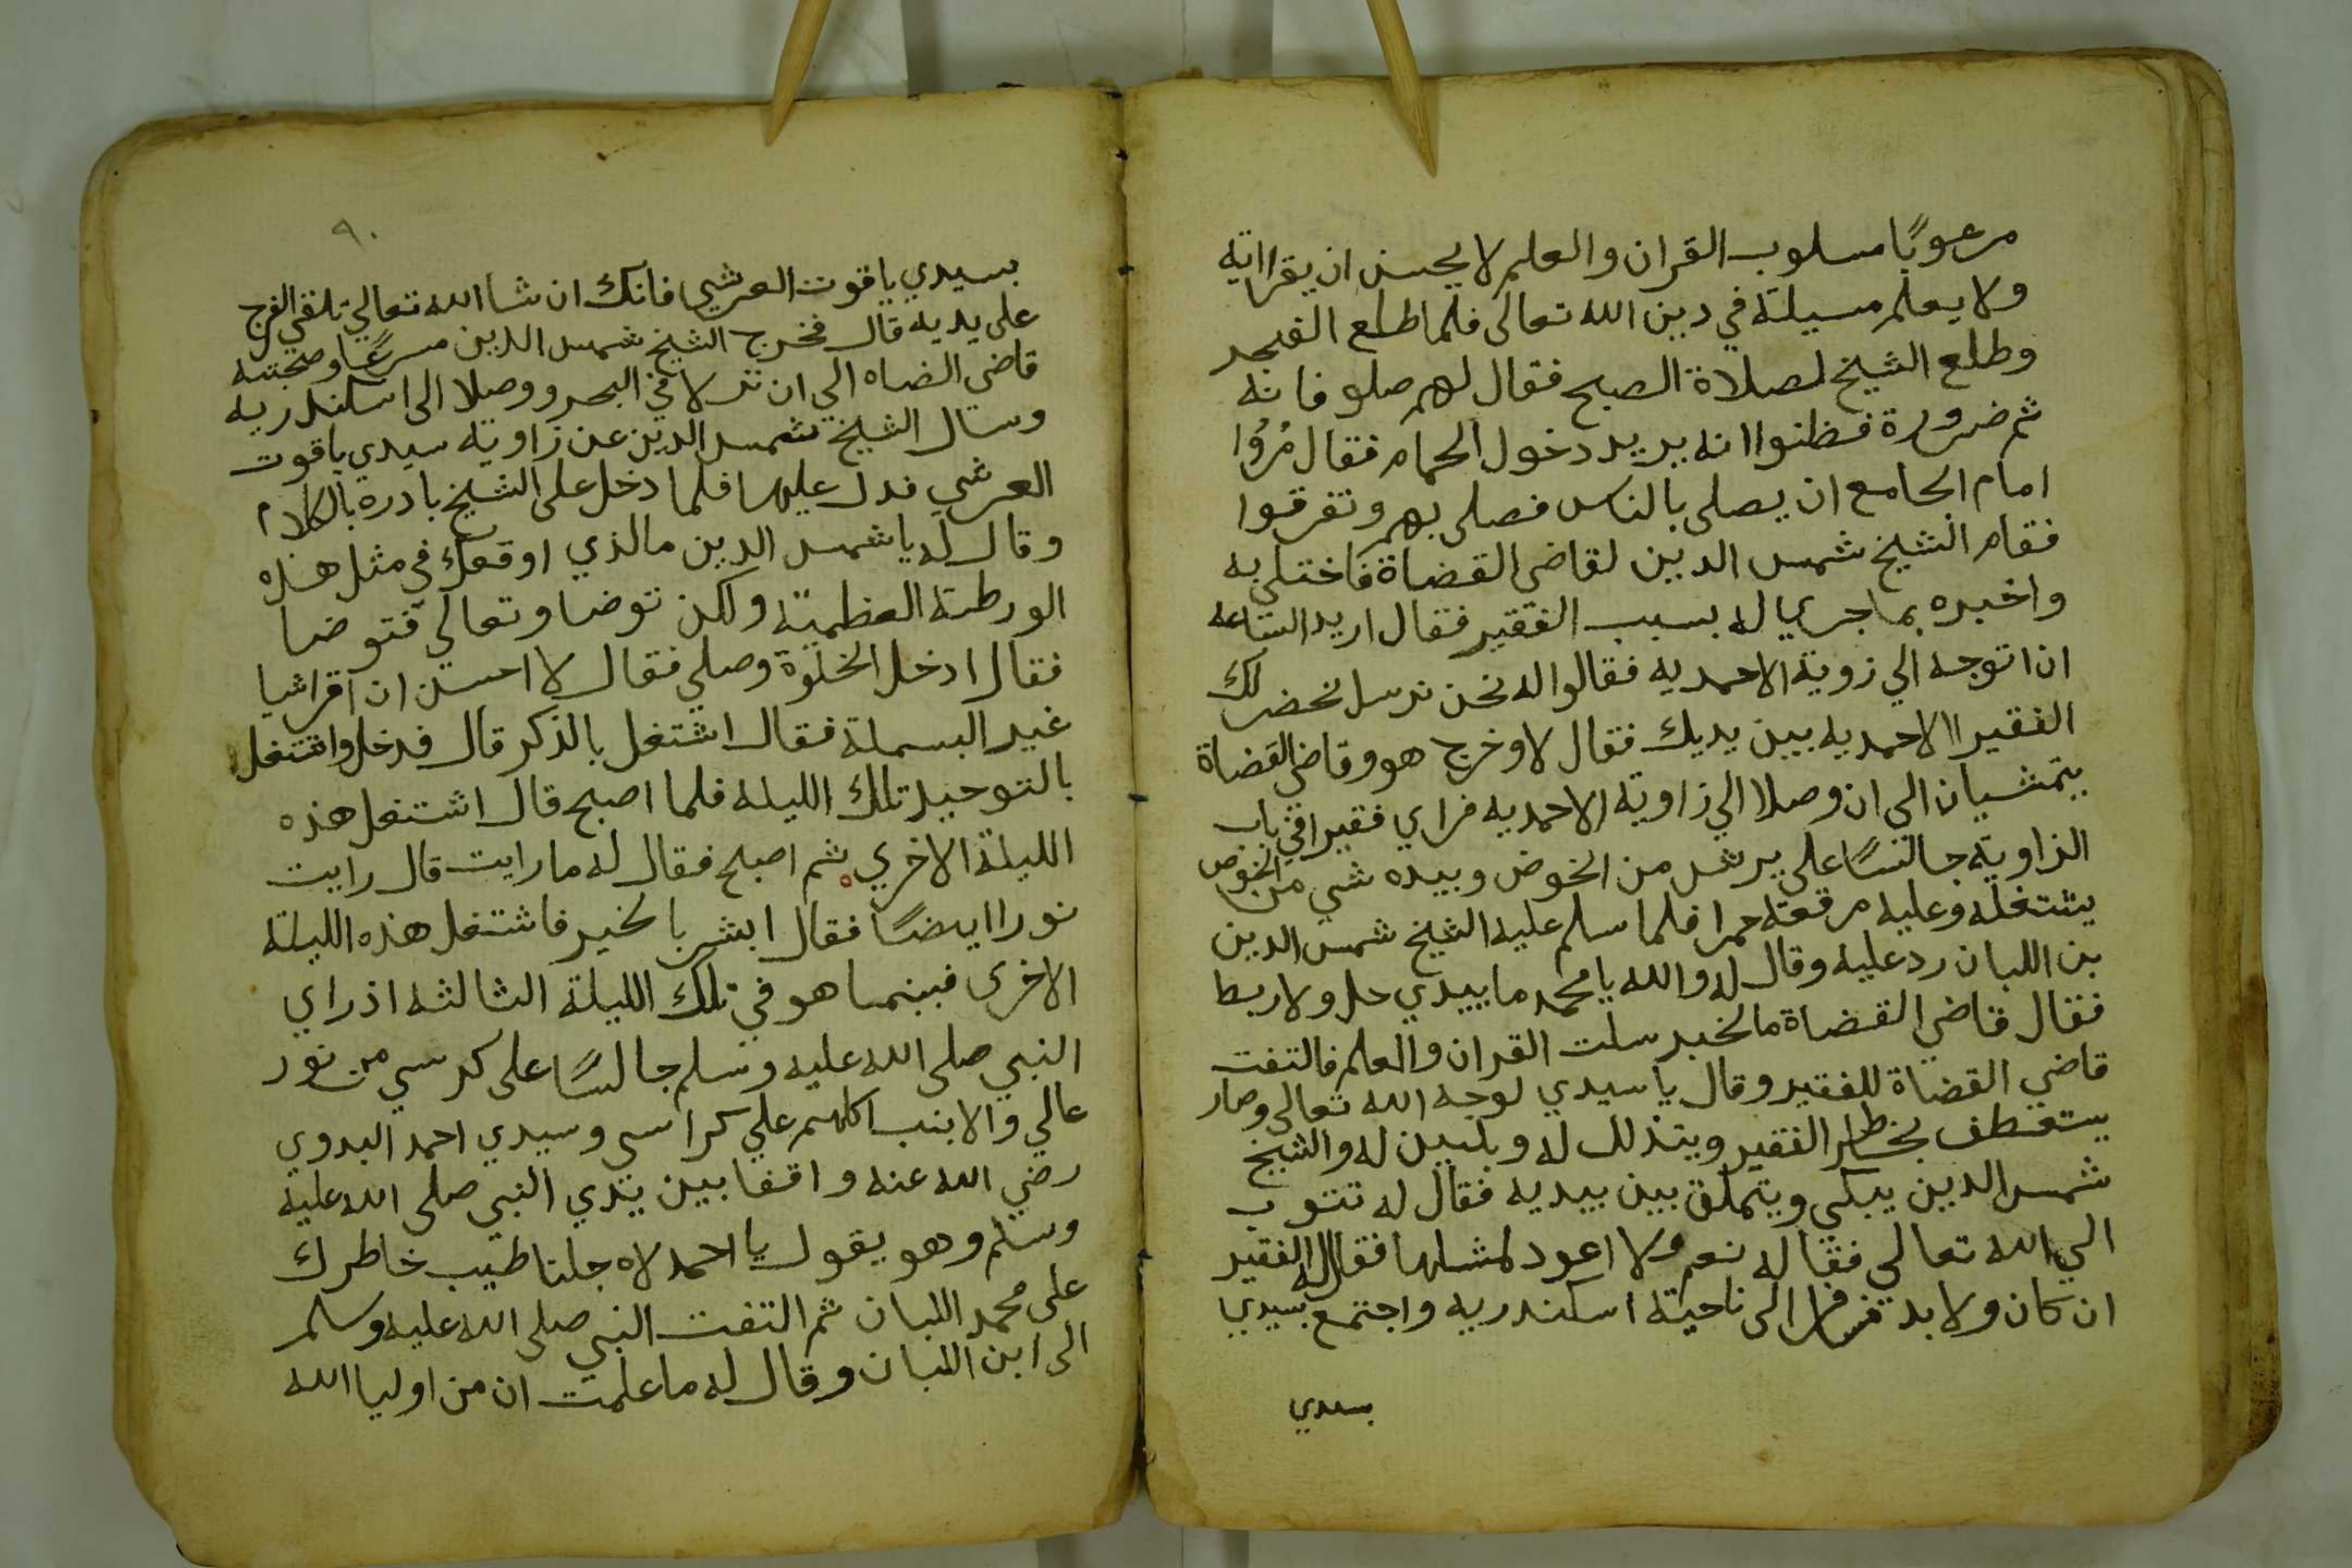 مرعوبًا مسلوب القران والعلم لا يحسن ان يقرا اية
ولا يعلم مسيلة في دين الله تعالى فلما طلع الفجر
وطلع الشيخ لصلاة الصبح فقال لهم صلو فانه
ثم ضرورة فظنوا انه يريد دخول الحمام فقال مُرُوا
امام الجامع ان يصلى بالناس فصلى بهم وتفرقوا
فقام الشيخ شمس الدين لقاضى القضاة فاختلى به
واخبره بما جري له بسبب الفقير فقال اريد الساعه
ان اتوجه الي زوية الاحمديه فقالوا له نحن نرسل نحضر لك
الفقير االاحمديه بين يديك فقال لا وخرج هو وقاضي القضاة
يتمشيان الى ان وصلا الي زاوية الاحمديه فراي فقيرا في باب
الزاوية جالسًا على برش من الخوض وبيده شي من الخوص
يشتغله وعليه مرقعة حمرا فلما سلم عليه الشيخ شمس الدين
بن اللبان رد عليه وقال له والله يا محمد ما بيدي حل ولا ربط
فقال قاضي القضاة ما لخبر سلت القران والعلم فالتفت
قاضي القضاة للفقير وقال يا سيدي لوجه الله تعالى وصار
يستعطف بخاطر الفقير ويتذلل له ويلين له والشيخ
شمس الدين يبكي ويتملق بين يديه فقال له تتوب
الي الله تعالي فقال له نعم ولا اعود لمثلها فقال له الفقير
ان كان ولا بد فسافر الى ناحية اسكندريه واجتمع بسيدي
بسيدي
٩٠
بسيدي ياقوت العرشي فانك ان شا الله تعالي تلقي الفرج
على يديه قال فخرج الشيخ شمس الدين مسرعًا وصحبته
قاضى الضاه الي ان نزلا في البحر ووصلا الى اسكندريه
وسال الشيخ شمس الدين عن زاوية سيدي ياقوت
العرشي فدل عليها فلما دخل على الشيخ بادره بالكلام
وقال له يا شمس الدين ما الذي اوقعك في مثل هذه
الورطة العظمية ولكن توضا وتعالي فتوضا
فقال ادخل الخلوة وصلي فقال لا احسن ان اقرا شيا
غير البسملة فقال اشتغل بالذكر قال فدخل واشتغل
بالتوحيد تلك الليلة فلما اصبح قال اشتغل هذه
الليلة الاخري ثم اصبح فقال له ما رايت قال رايت
نورا ايضًا فقال ابشر بالخير فاشتغل هذه الليلة
الاخرى فبينما هو في تلك الليلة الثالثه اذ راي
النبي صلى الله عليه وسلم جالسًا على كرسي من نور
عالي والانب اكلهم علي كراسى وسيدي احمد البدوي
رضي الله عنه واقفا بين يدي النبي صلى الله عليه
وسلم وهو يقول يا احمد لاه جلنا طيب خاطرك
على محمد اللبان ثم التفت النبي صلى الله عليه وسلم
الى ابن اللبان وقال له ما علمت ان من اوليا الله